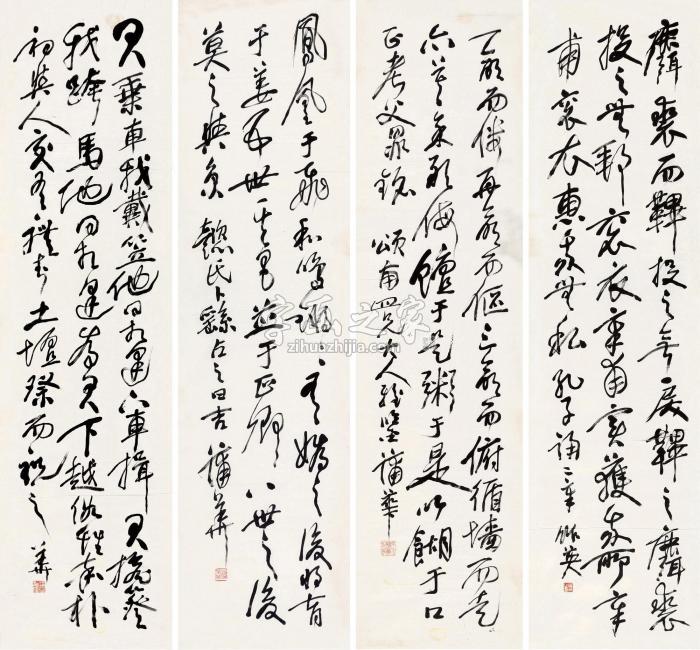 麛裘而鞸投之无戾鞸之麛裘
投之無郵袞衣章甫實獲我所章
甫袞衣惠我無私孔子誦二章 胙英
一命而僂再命而傴三命而俯循墻而走
亦莫余敢侮饘于是粥于是以餬于口
正考父鼎銘 頌南四兄大人雅鑒 蒲華
鳳凰于飛和鳴鏘〻有媯之後將育
于姜五世其昌並于正卿八世之後
莫之與京 懿氏卜繇占之曰吉 蒲華
君乘車我戴笠他日相逢下車揖 君擔簦
我跨馬他日相逢為君下越俗性率朴
初與人交有禮封土壇祭而祝之 華
字画之家
zihuazhijia.com